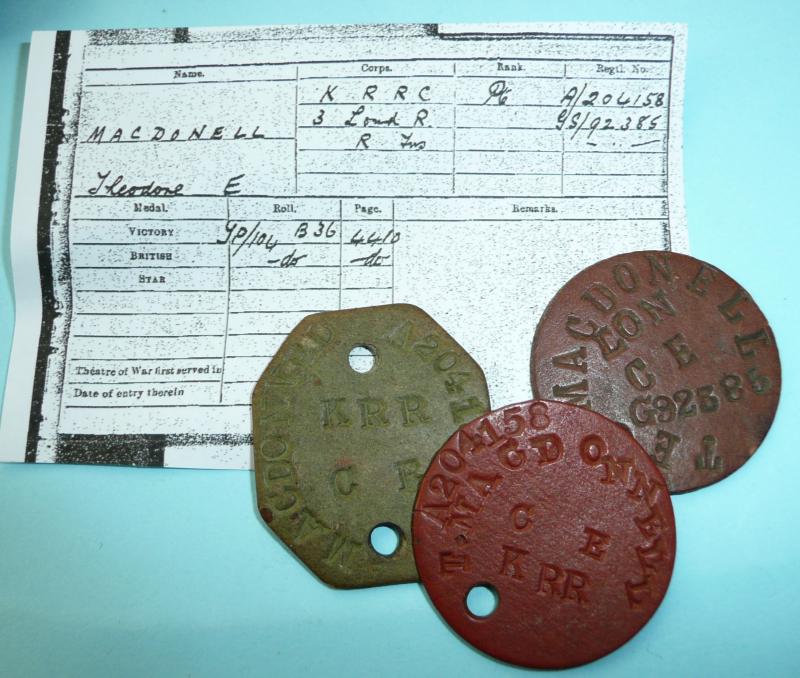 Name. Corps. Rank. Regtl. No.
K R R C Pte A/204158
3 Lond R. GS/92385
MACDONELL R Fus — —
Theodore E
Medal. Roll. Page. Remarks.
VICTORY TP/104 B36 4410
BRITISH -do -do
STAR
Theatre of War first served in
Date of entry therein
A2041
KRR
C E
MACDO
MACDONELL
LON
C E
G92385
TE
A204158
T·MACDONNELL
C E
KRR